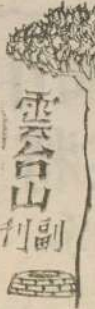 雲台山
副刊